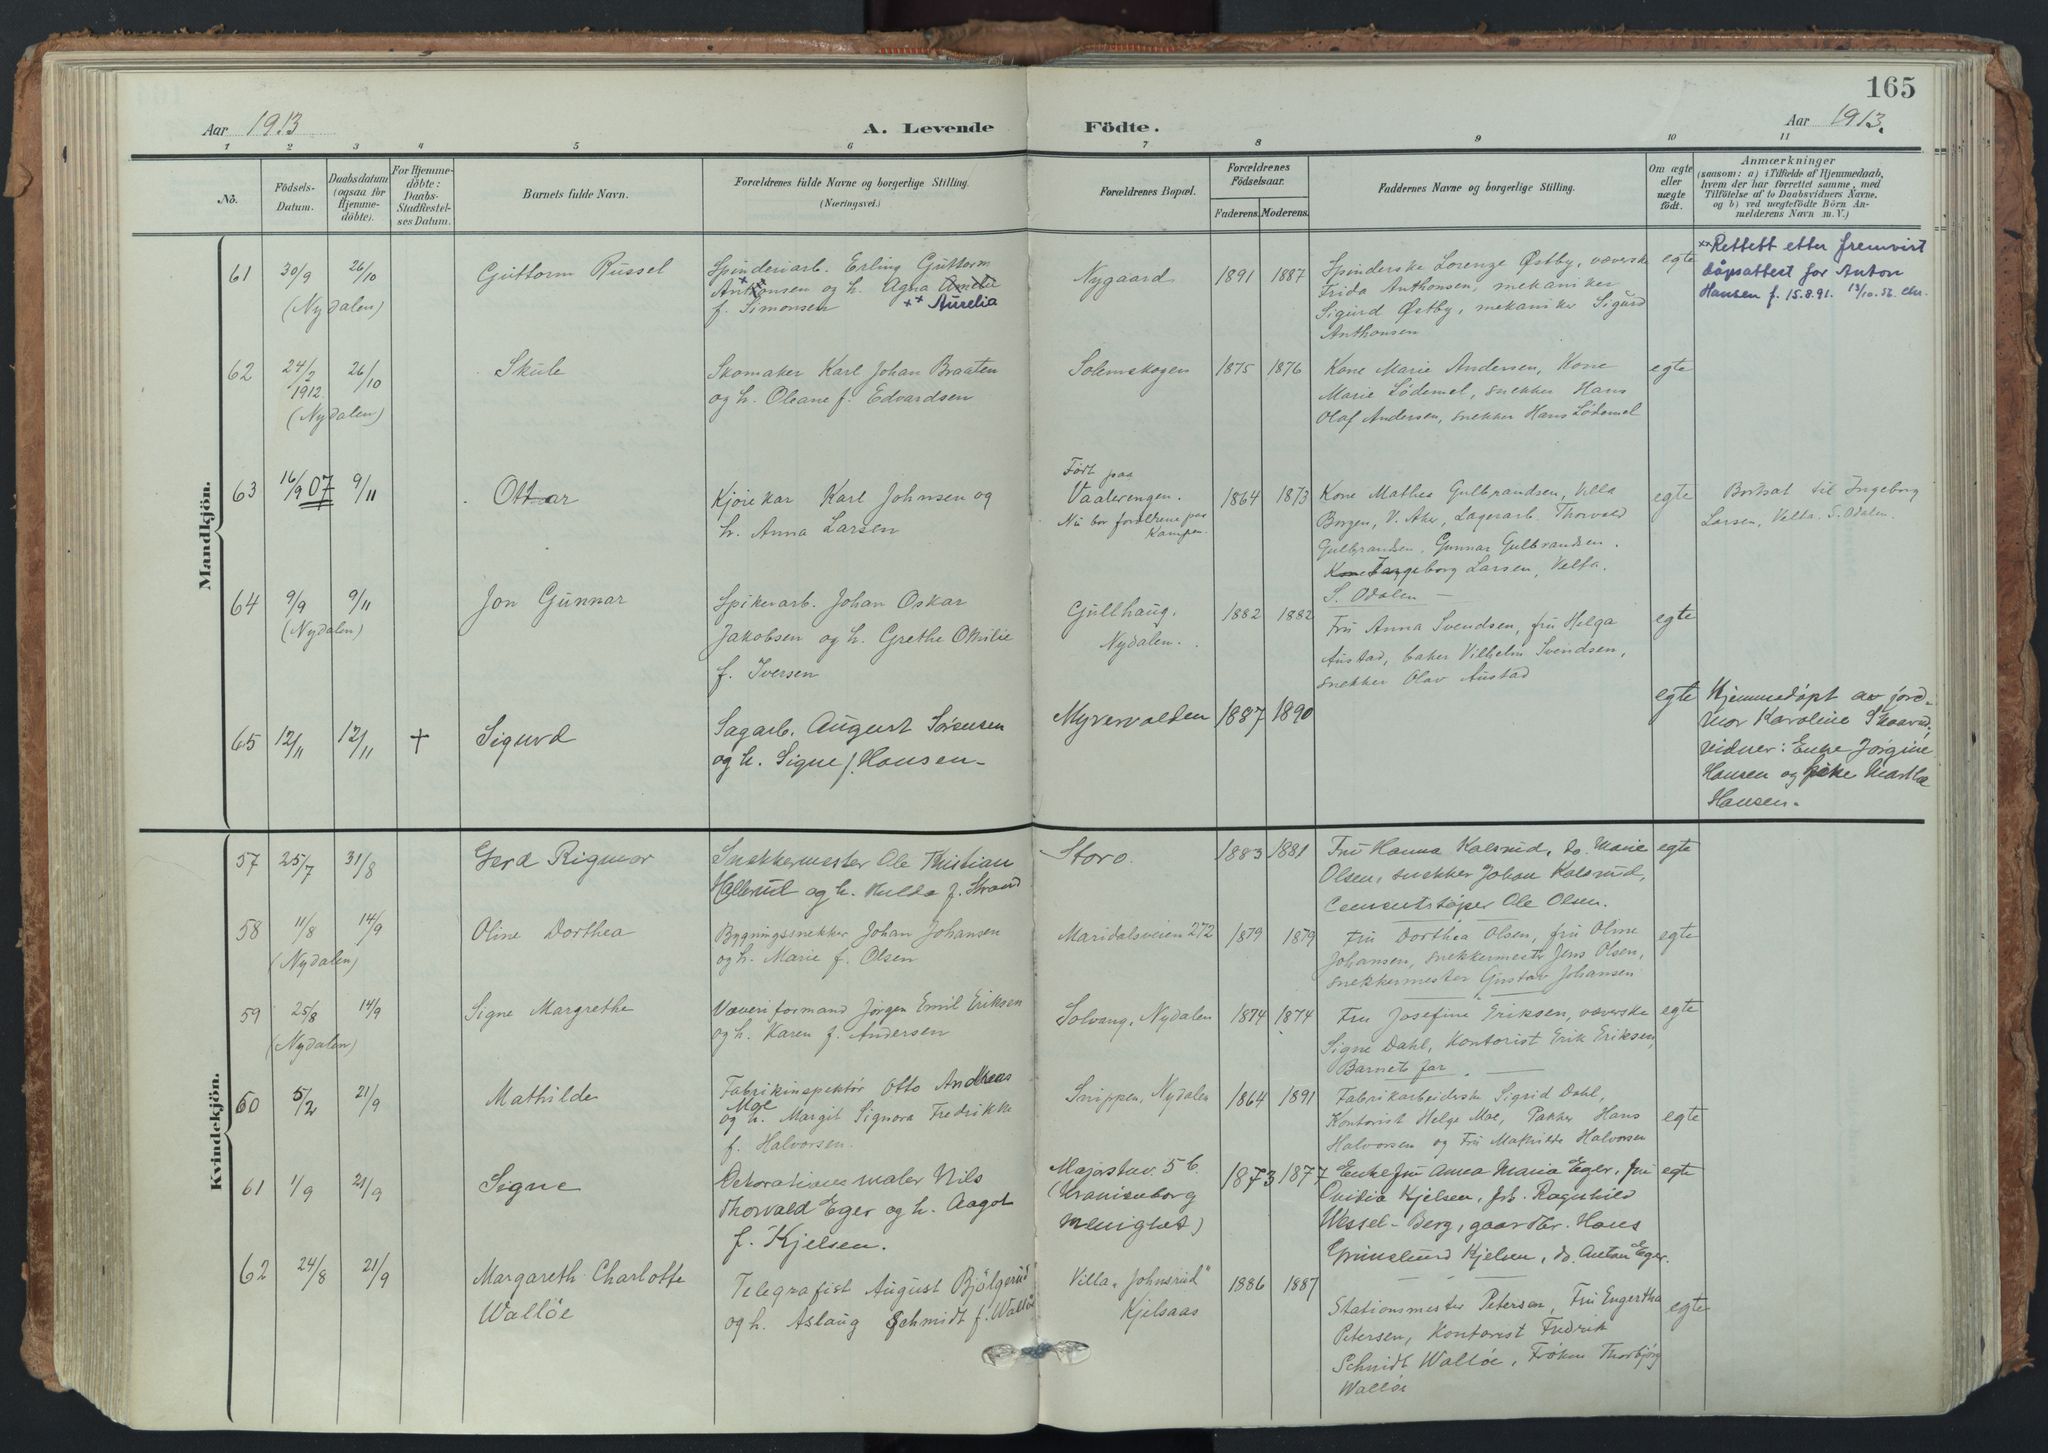 165
Aar 1913
A. Levende
Födte.
Aar 1913.
1 2 3 4 5 6 7 8 9 10 11
No.
Födsels-
Datum.
Daabsdatum
(ogsaa for
Hjemme-
döbte).
For Hjemme-
döbte:
Daabs-
Stadfæstel-
ses Datum.
Barnets fulde Navn.
Forældrenes fulde Navne og borgerlige Stilling.
(Næringsvei.)
Forældrenes Bopæl.
Forældrenes
Födselsaar.
Faderens. Moderens.
Faddernes Navne og borgerlige Stilling.
Om ægte
eller
uægte
födt.
Anmærkninger
(saasom: a) i Tilfælde af Hjemmedaab,
hvem der har forrettet samme, med
Tilföielse af to Daabsvidners Navne,
og b) ved uægtefödte Börn An-
melderens Navn m. V.)
Mandkjön.
61
30/9
(Nydalen)
26/10
Guttorm Russel
Spinderiarb. Erling Guttorm
Anthonsen og h. Agna Amelie
f. Simonsen ×× Aurelia
Nygaard
1891 1887
Spinderske Lorenze Østby, væverske
Frida Anthonsen, mekaniker
Sigurd Østby, mekaniker Sigurd
Anthonsen
egte
×× Rettett etter fremvist
dåpsattest for Anton
Hansen f. 15.8.91. 13/10.56.
62
24/2
1912.
(Nydalen)
26/10
Skule
Skomaker Karl Johan Braaten
og h. Oleane f. Edvardsen
Solemskogen
1875 1876
Kone Marie Andersen, Kone
Marie Lødemel, snekker Hans
Olaf Andersen, snekker Hans Lødemel
egte
63
16/9 07
9/11
Ottar
Kjørekar Karl Johnsen og
h. Anna Larsen
Født paa
Vaalerengen.
Nu bor foreldrene paa
Kampen.
1864 1873
Kone Mathea Gulbrandsen, Villa
Borgen, V. Aker, Lagerarb. Thorvald
Gulbrandsen, Gunnar Gulbrandsen.
Kone Ingeborg Larsen, Velta.
S. Odalen
egte
Bortsat til Ingeborg
Larsen, Velta. S. Odalen.
64
9/9
(Nydalen)
9/11
Jon Gunnar
Spikerarb. Johan Oskar
Jakobsen og h. Grethe Otilie
f. Iversen
Gullhaug,
Nydalen.
1882 1882
Fru Anna Svendsen, fru Helga
Austad, baker Vilhelm Svendsen,
snekker Olav Austad
egte
65
12/11
12/11
+
Sigurd
Sagarb. August Sørensen
og h. Signe f. Hansen
Myrervolden
1887 1890
egte
Hjemmedøpt av jord-
mor Karoline
vidner: Enke Jørgine
Hansen og pike Martha
Hansen.
Kvindekjön.
57
25/7
31/8
Gerd Rigmor
Snekkermester Ole Kristian
Hallerud og h. Hulda f. Strand
Storo.
1883 1881
Fru Hanna Kalsrud, do. Marie
Olsen, snekker Johan Kalsrud,
Cementstøper Ole Olsen.
egte
58
11/8
(Nydalen)
14/9
Oline Dorthea
Bygningssnekker Johan Johansen
og h. Marie f. Olsen
Maridalsveien 272
1879 1879
Fru Dorthea Olsen, fru Oline
Johansen, snekkermestr Jens Olsen,
snekkermester Gustav Johansen
egte
59
25/8
(Nydalen)
14/9
Signe Margrethe
Væveriformand Jørgen Emil Eriksen
og h. Karen f. Andersen
Solvang, Nydalen
1874 1874
Fru Josefine Eriksen, væverske
Signe Dahl, Kontorist Erik Eriksen,
Barnets far
egte
60
5/2
21/9
Mathilde
Fabrikinspektør Otto Andreas
Moe
og h. Margit Signora Fredrikke
f. Halvorsen.
Snippen, Nydalen
1864 1891
Fabrikarbeiderske Sigrid Dahl,
Kontorist Helge Moe, Pakker Hans
Halvorsen og Fru Mathilde Halvorsen
egte
61
1/9
21/9
Signe
Dekorationsmaler Nils
Thorvald Eger og h. Aagot
f. Kjelsen.
Majorstuv. 5 b.
(Uranienborg
menighet)
1873 1877
Enkefru Anna Maria Eger, fru
Ovidia Kjelsen, frk. Ragnhild
Wessel-Berg, gaardbr. Hans
Kjelsen, do. Anton Eger.
egte
62
24/8
21/9
Margareth Charlotte
Walløe
Telegrafist August Bjølgerud
og h. Aslaug Schmidt f. Walløe
Villa "Johnsrud"
Kjelsaas
1886 1887
Stationsmester Petersen, Fru Engertha
Petersen, Kontorist Fredrik
Schmidt Walløe, Frøken Thorbjørg
Walløe
egte